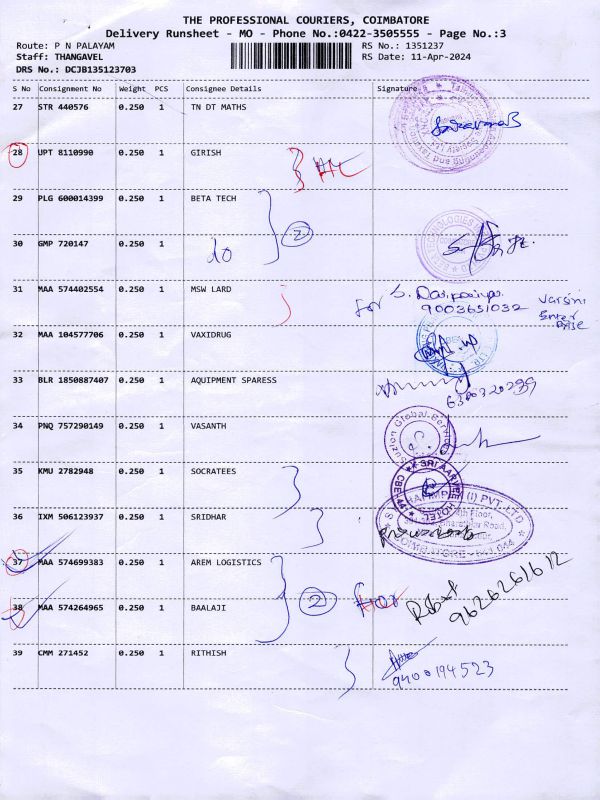 THE PROFESSIONAL COURIERS, COIMBATORE
Delivery Runsheet - MO - Phone No.:0422-3505555 - Page No.:3
Route: P N PALAYAM RS No.: 1351237
Staff: THANGAVEL RS Date: 11-Apr-2024
DRS No.: DCJB135123703
S No Consignment No Weight PCS Consignee Details Signature
27 STR 440576 0.250 1 TN DT MATHS
28 UPT 8110990 0.250 1 GIRISH
29 PLG 600014399 0.250 1 BETA TECH
2
30 GMP 720147 0.250 1 do
31 MAA 574402554 0.250 1 MSW LARD for S.
9003651032
32 MAA 104577706 0.250 1 VAXIDRUG
33 BLR 1850887407 0.250 1 AQUIPMENT SPARESS
34 PNQ 757290149 0.250 1 VASANTH
35 KMU 2782948 0.250 1 SOCRATEES
36 IXM 506123937 0.250 1 SRIDHAR
(I) PVT. LTD
COIMBATORE - 641 044
37 MAA 574699383 0.250 1 AREM LOGISTICS
38 MAA 574264965 0.250 1 BAALAJI 2 for
9626261612
39 CMM 271452 0.250 1 RITHISH
9400194523